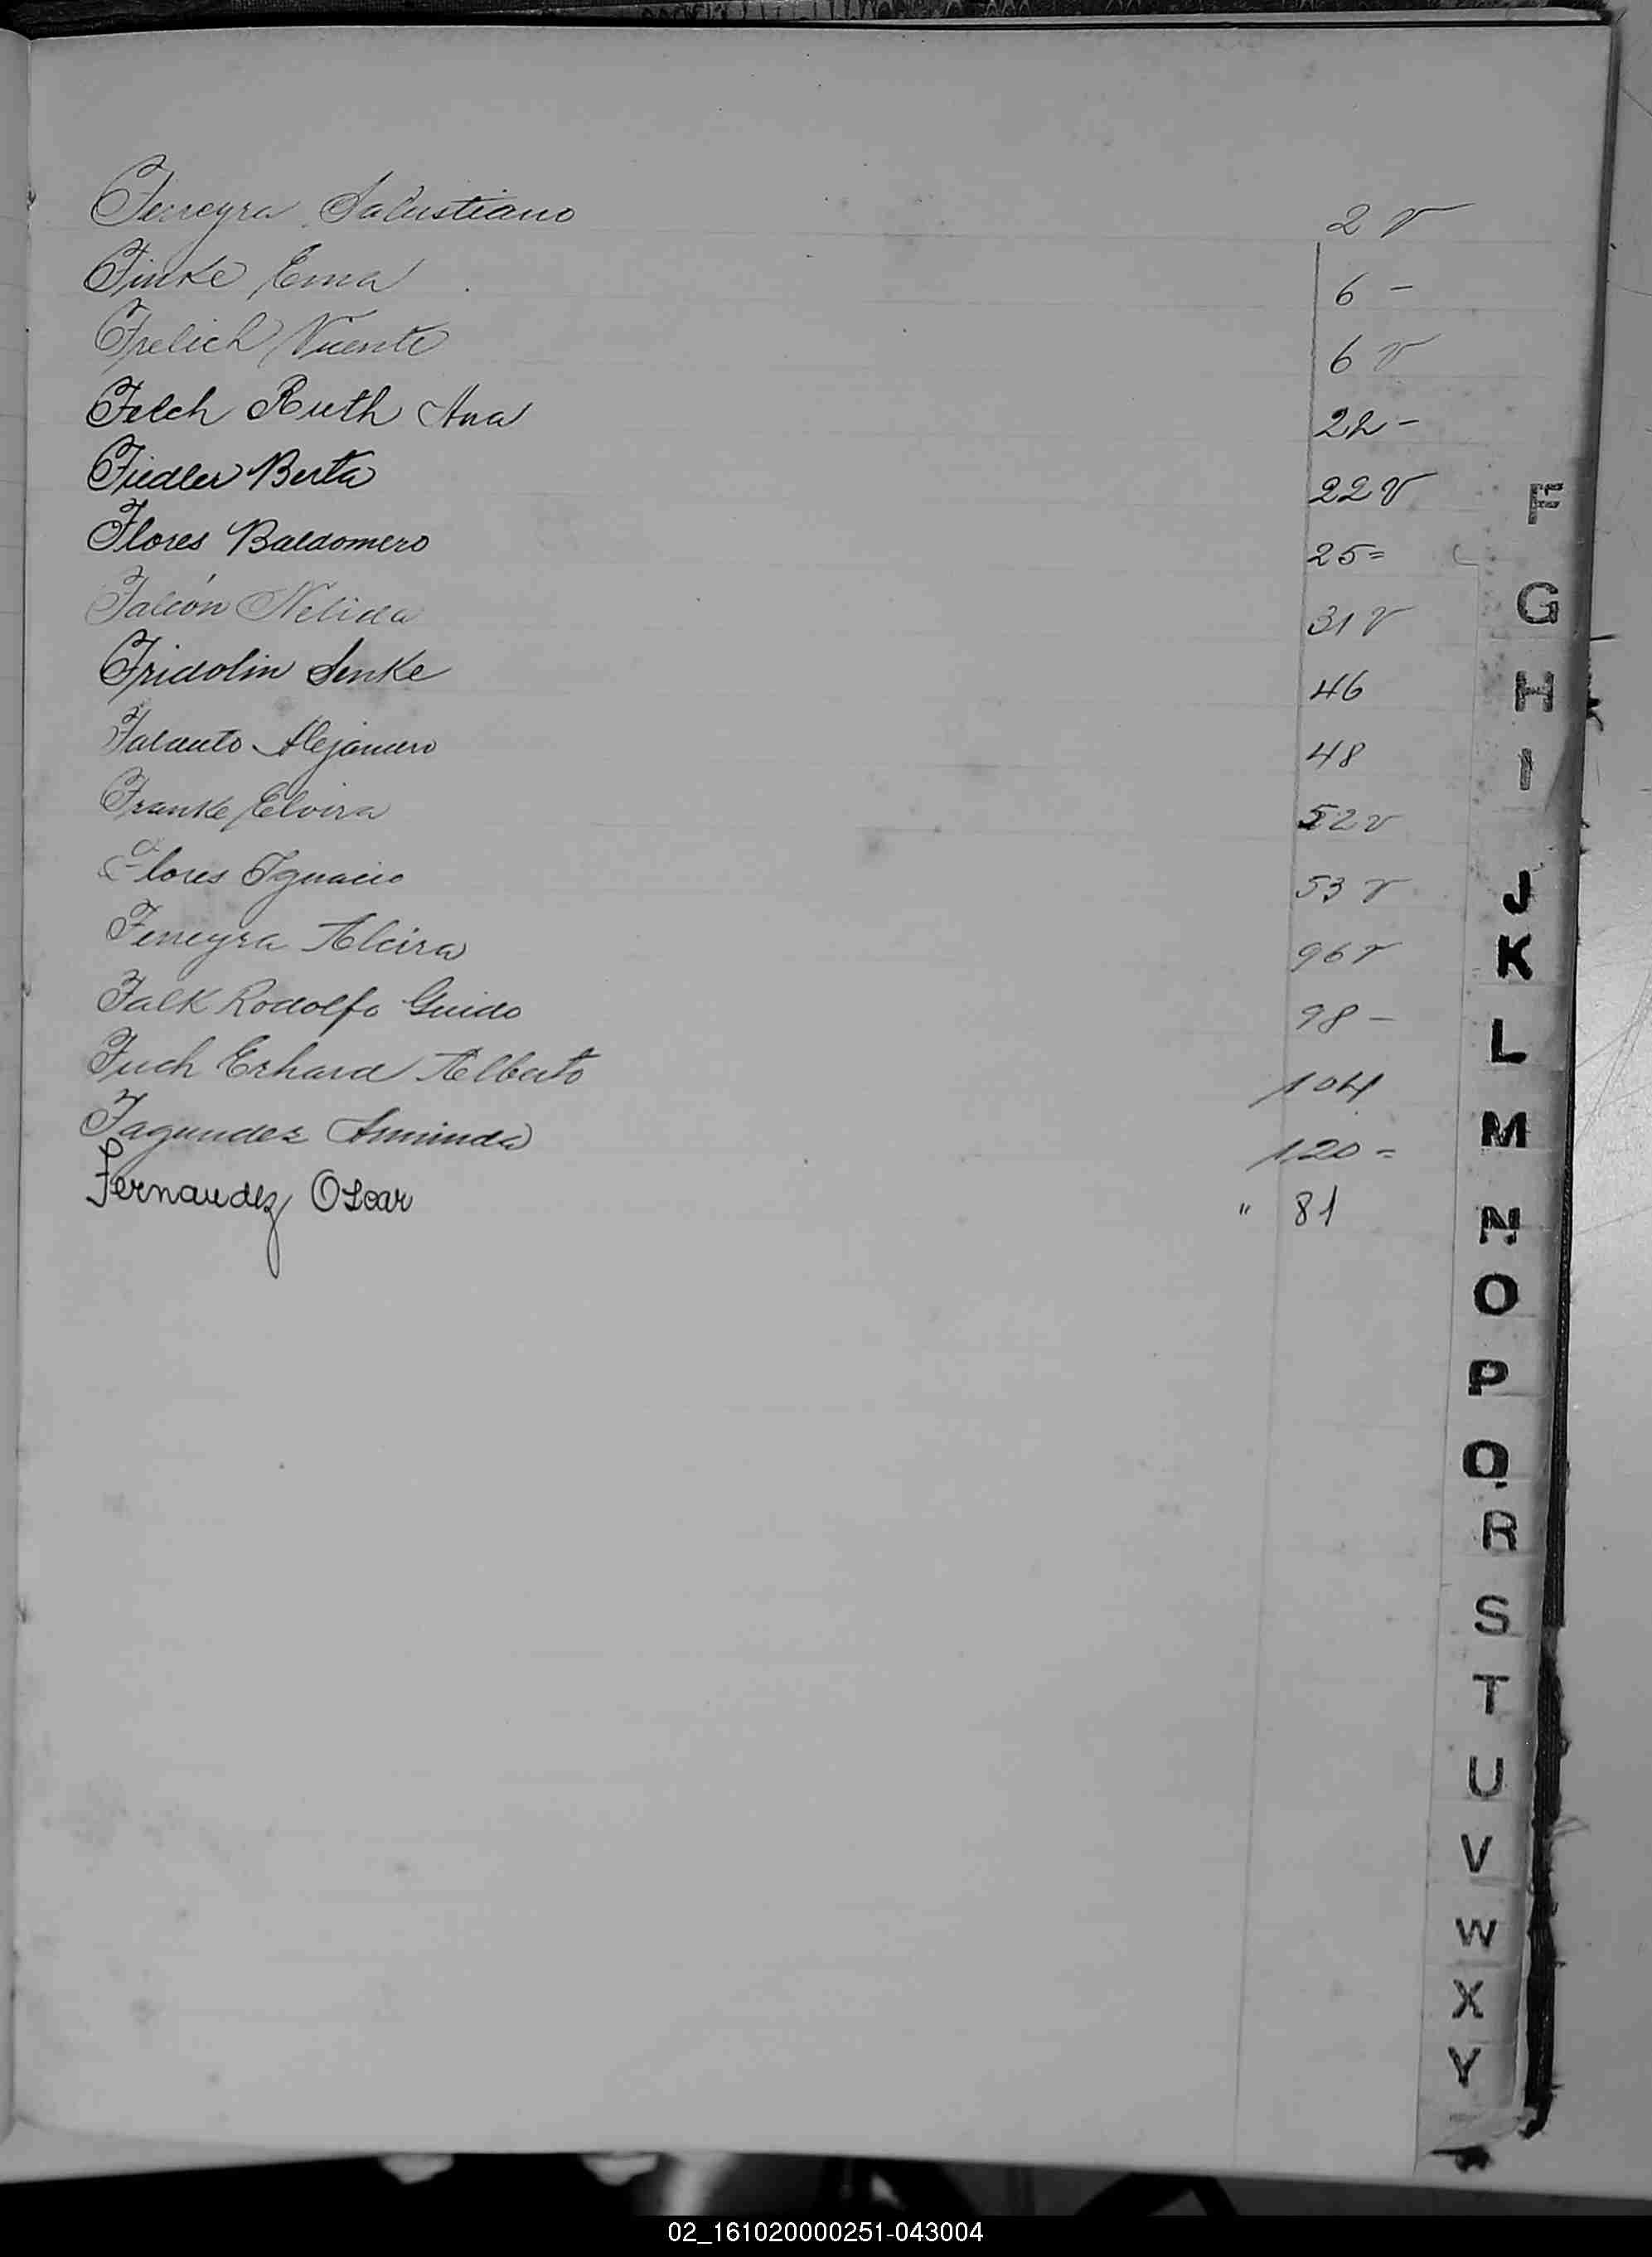 Ferreyra Salustiano 2 v
Finke Ema 6 -
Frelich Vicente 6 v
Felch Ruth Ana 22 -
Fiedler Berta 22 v
Flores Baldomero 25 =
Falcón Nelida 31 v
Fridolin Senke 46
Alejandro 48
Franke Elvira 52 v
Flores Ignacio 53 v
Ferreyra Alcira 96 v
Falk Rodolfo Guido 98 -
Fuch Erhard Alberto 104
Fagundez Arminda 120 =
Fernandez Oscar " 81
F
G
H
I
J
K
L
M
N
O
P
Q
R
S
T
U
V
W
X
Y
02_161020000251-043004